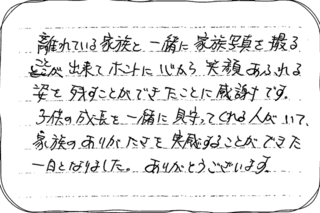 離れている家族と一緒に家族写真を撮る
ことが出来てホントに心から笑顔あふれる
姿を残すことができたことに感謝です。
子供の成長を一緒に見守ってくれる人がいて、
家族のありがたさを実感することができた
一日となりました。ありがとうございます。